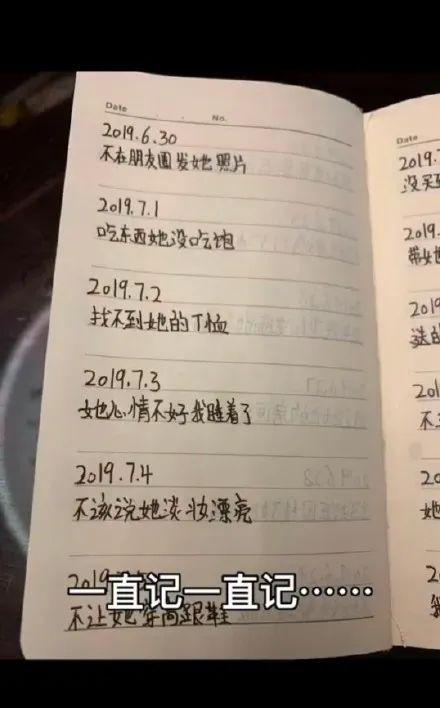 Date . . No.
2019.6.30
不在朋友圈发她照片
2019.7.1
吃东西她没吃饱
2019.7.2
找不到她的T恤
2019.7.3
她心情不好我睡着了
2019.7.4
不该说她淡妆漂亮
2019
不让她穿高跟鞋
一直记一直记……
Date
2019.7
没买
2019.
带她
2019
送的
2019
不
20
她
20
我